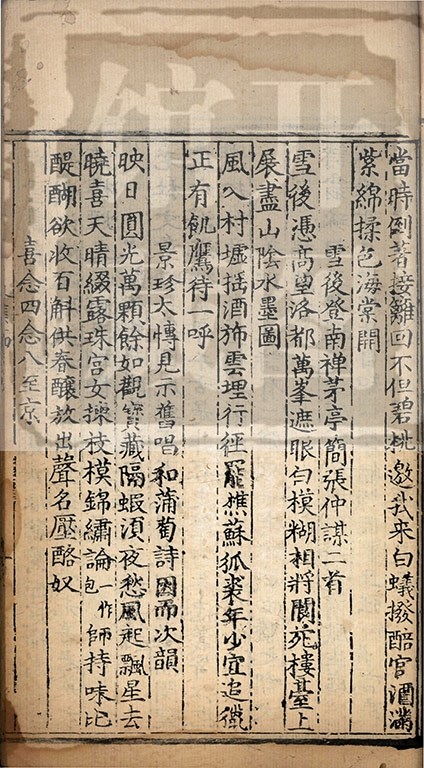 當時倒著接䍦回不但碧桃邀我来白蟻撥醅官酒滿
紫綿揉色海棠開
雪後登南禅茅亭簡張仲謀二首
雪後憑髙望洛都萬峯遮眼白模糊相將閬苑樓臺上
展盡山陰水墨圖
風入村墟揺酒斾雲埋行徑罷樵蘇狐裘年少宜追獵
正有飢鷹待一呼
景珍太博見示舊唱和蒲萄詩因而次韻
映日圓光萬顆餘如觀寳藏隔蝦湏夜愁風起飄星去
曉喜天晴綴露珠宫女揀枝模錦繡論一作包師持味比
醍醐欲收百斛供春釀放出聲名壓酪奴
喜念四念八至京